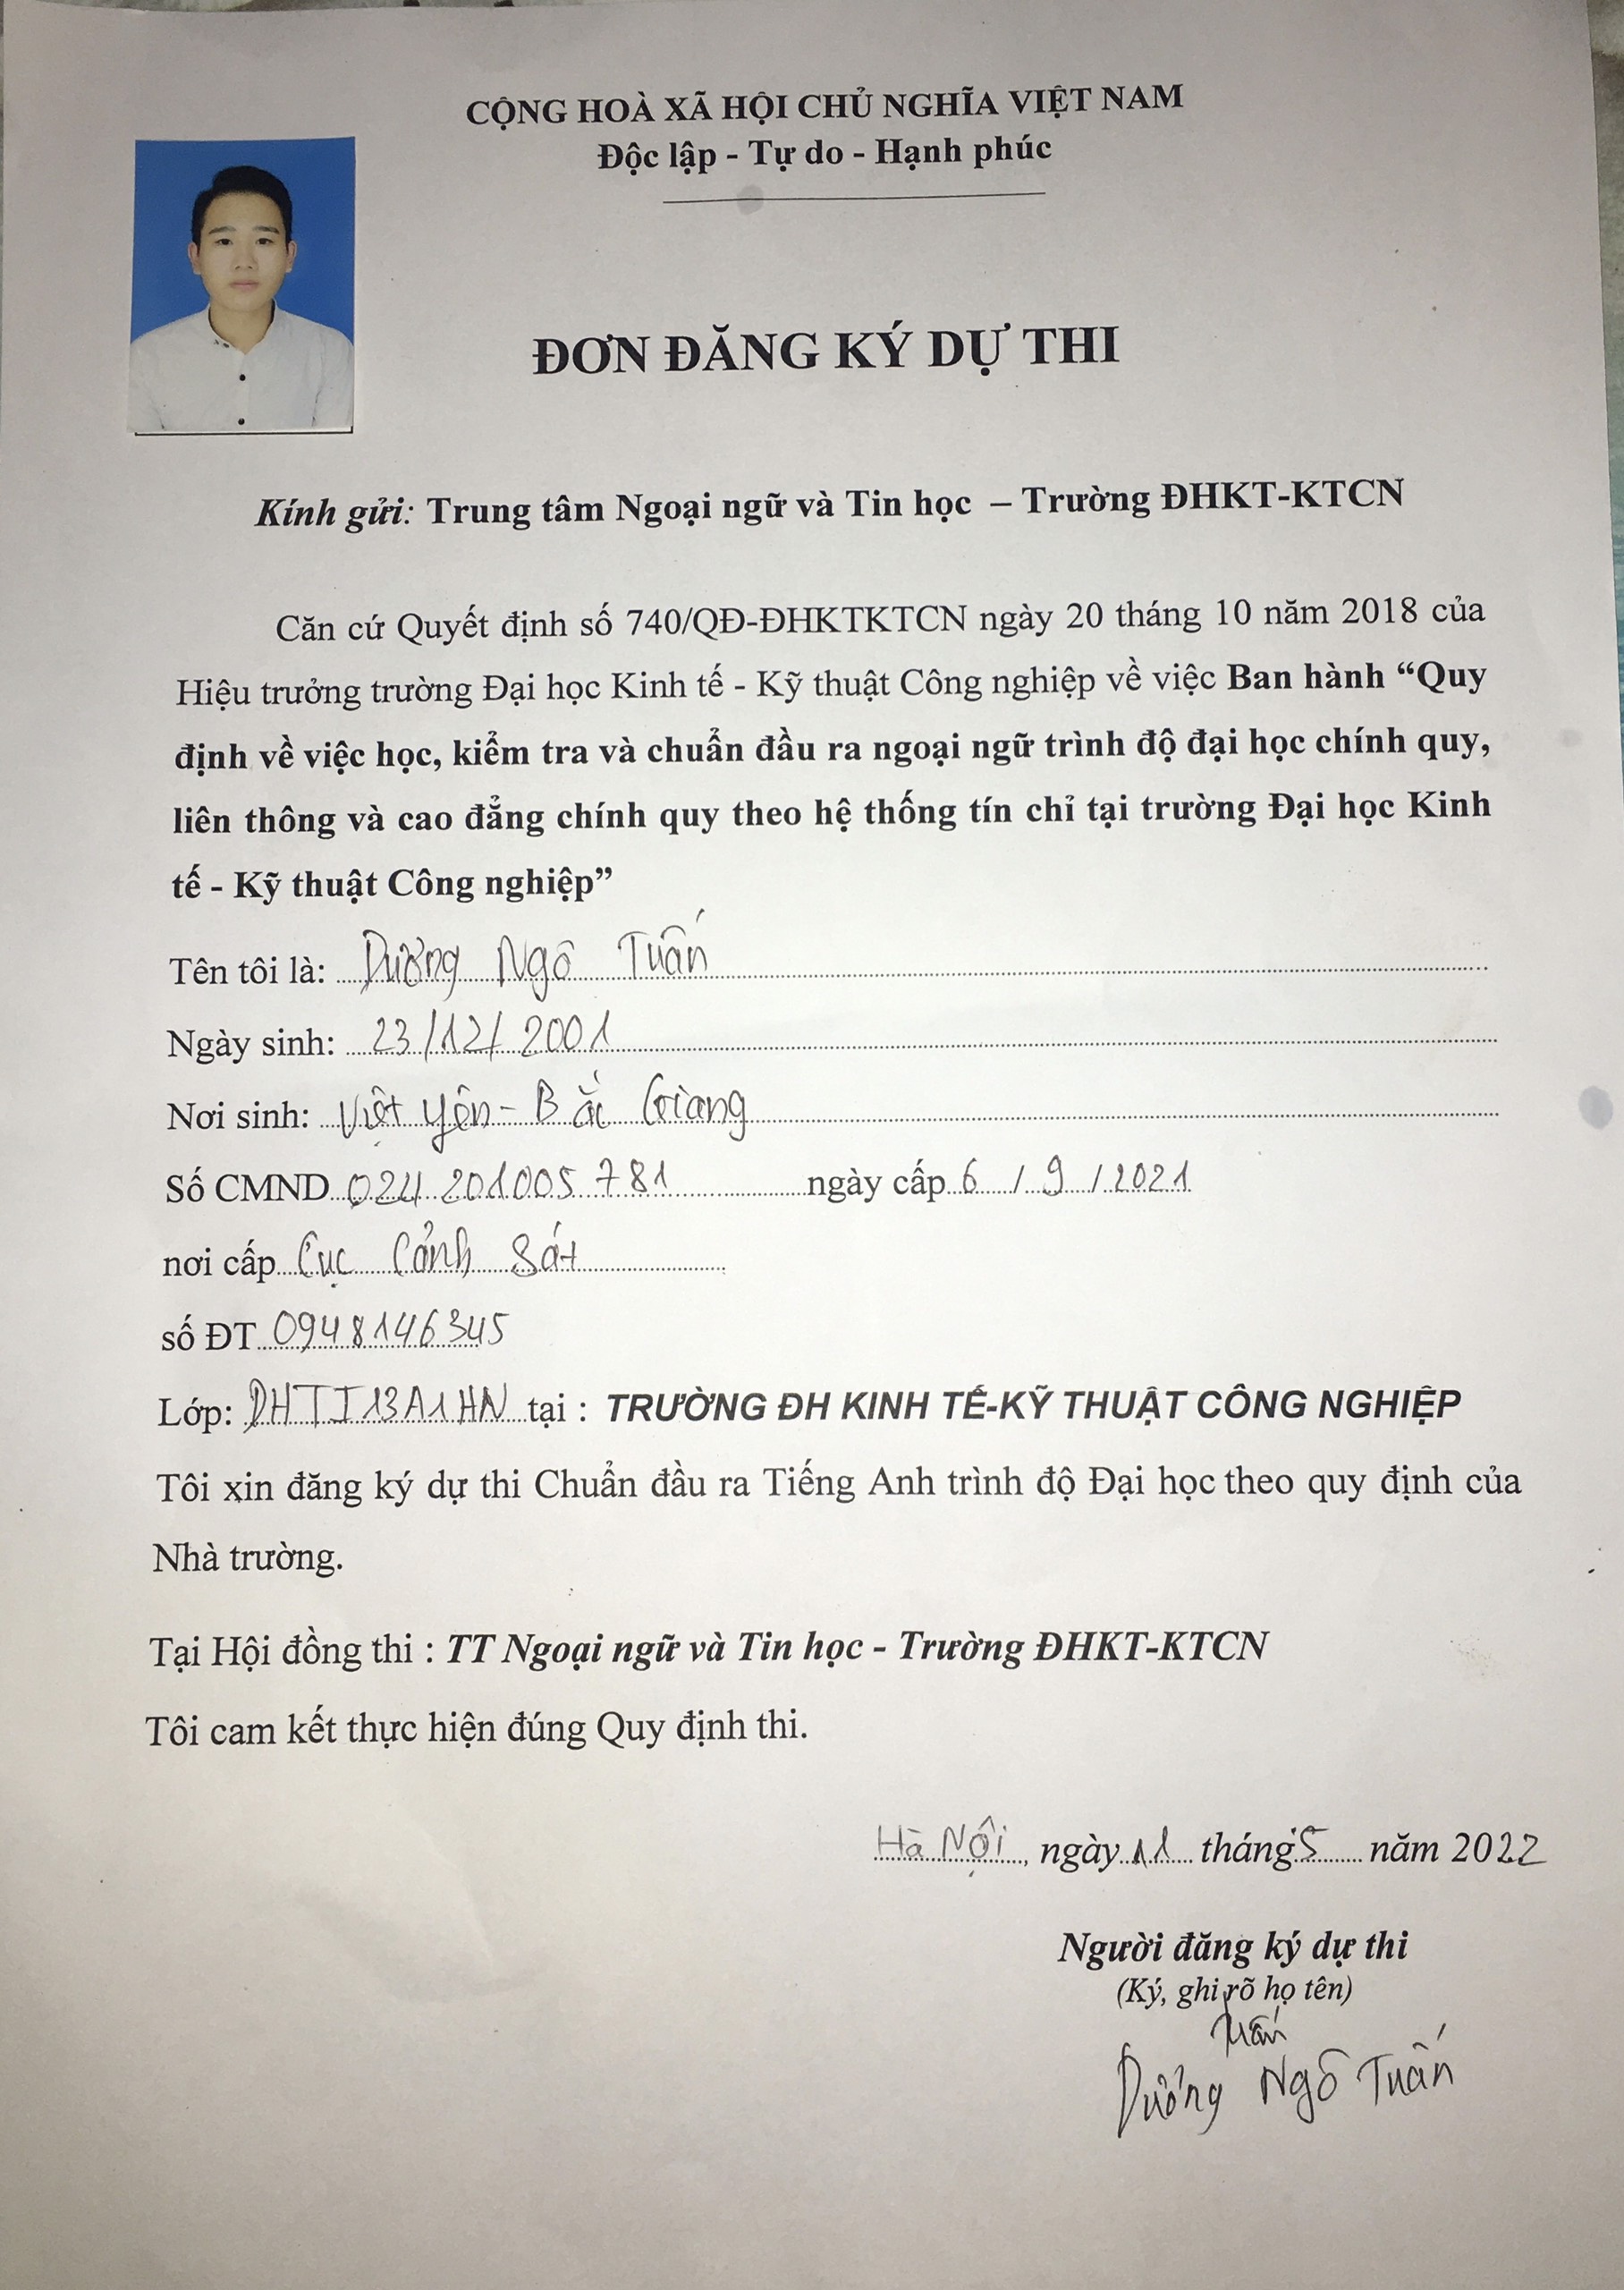 CỘNG HOÀ XÃ HỘI CHỦ NGHĨA VIỆT NAM
Độc lập - Tự do - Hạnh phúc
ĐƠN ĐĂNG KÝ DỰ THI
Kính gửi: Trung tâm Ngoại ngữ và Tin học – Trường ĐHKT-KTCN
Căn cứ Quyết định số 740/QĐ-ĐHKTKTCN ngày 20 tháng 10 năm 2018 của
Hiệu trưởng trường Đại học Kinh tế - Kỹ thuật Công nghiệp về việc Ban hành “Quy
định về việc học, kiểm tra và chuẩn đầu ra ngoại ngữ trình độ đại học chính quy,
liên thông và cao đẳng chính quy theo hệ thống tín chỉ tại trường Đại học Kinh
tế - Kỹ thuật Công nghiệp”
Tên tôi là: Dương Ngô Tuấn
Ngày sinh: 23/12/2001
Nơi sinh: Việt Yên - Bắc Giang
Số CMND 024201005781 ngày cấp 6/9/2021
nơi cấp Cục Cảnh Sát
số ĐT 0948146345
Lớp: DHTI13A1HN tại : TRƯỜNG ĐH KINH TẾ-KỸ THUẬT CÔNG NGHIỆP
Tôi xin đăng ký dự thi Chuẩn đầu ra Tiếng Anh trình độ Đại học theo quy định của
Nhà trường.
Tại Hội đồng thi : TT Ngoại ngữ và Tin học - Trường ĐHKT-KTCN
Tôi cam kết thực hiện đúng Quy định thi.
Hà Nội, ngày 11 tháng 5 năm 2022
Người đăng ký dự thi
(Ký, ghi rõ họ tên)
Tuấn
Dương Ngô Tuấn